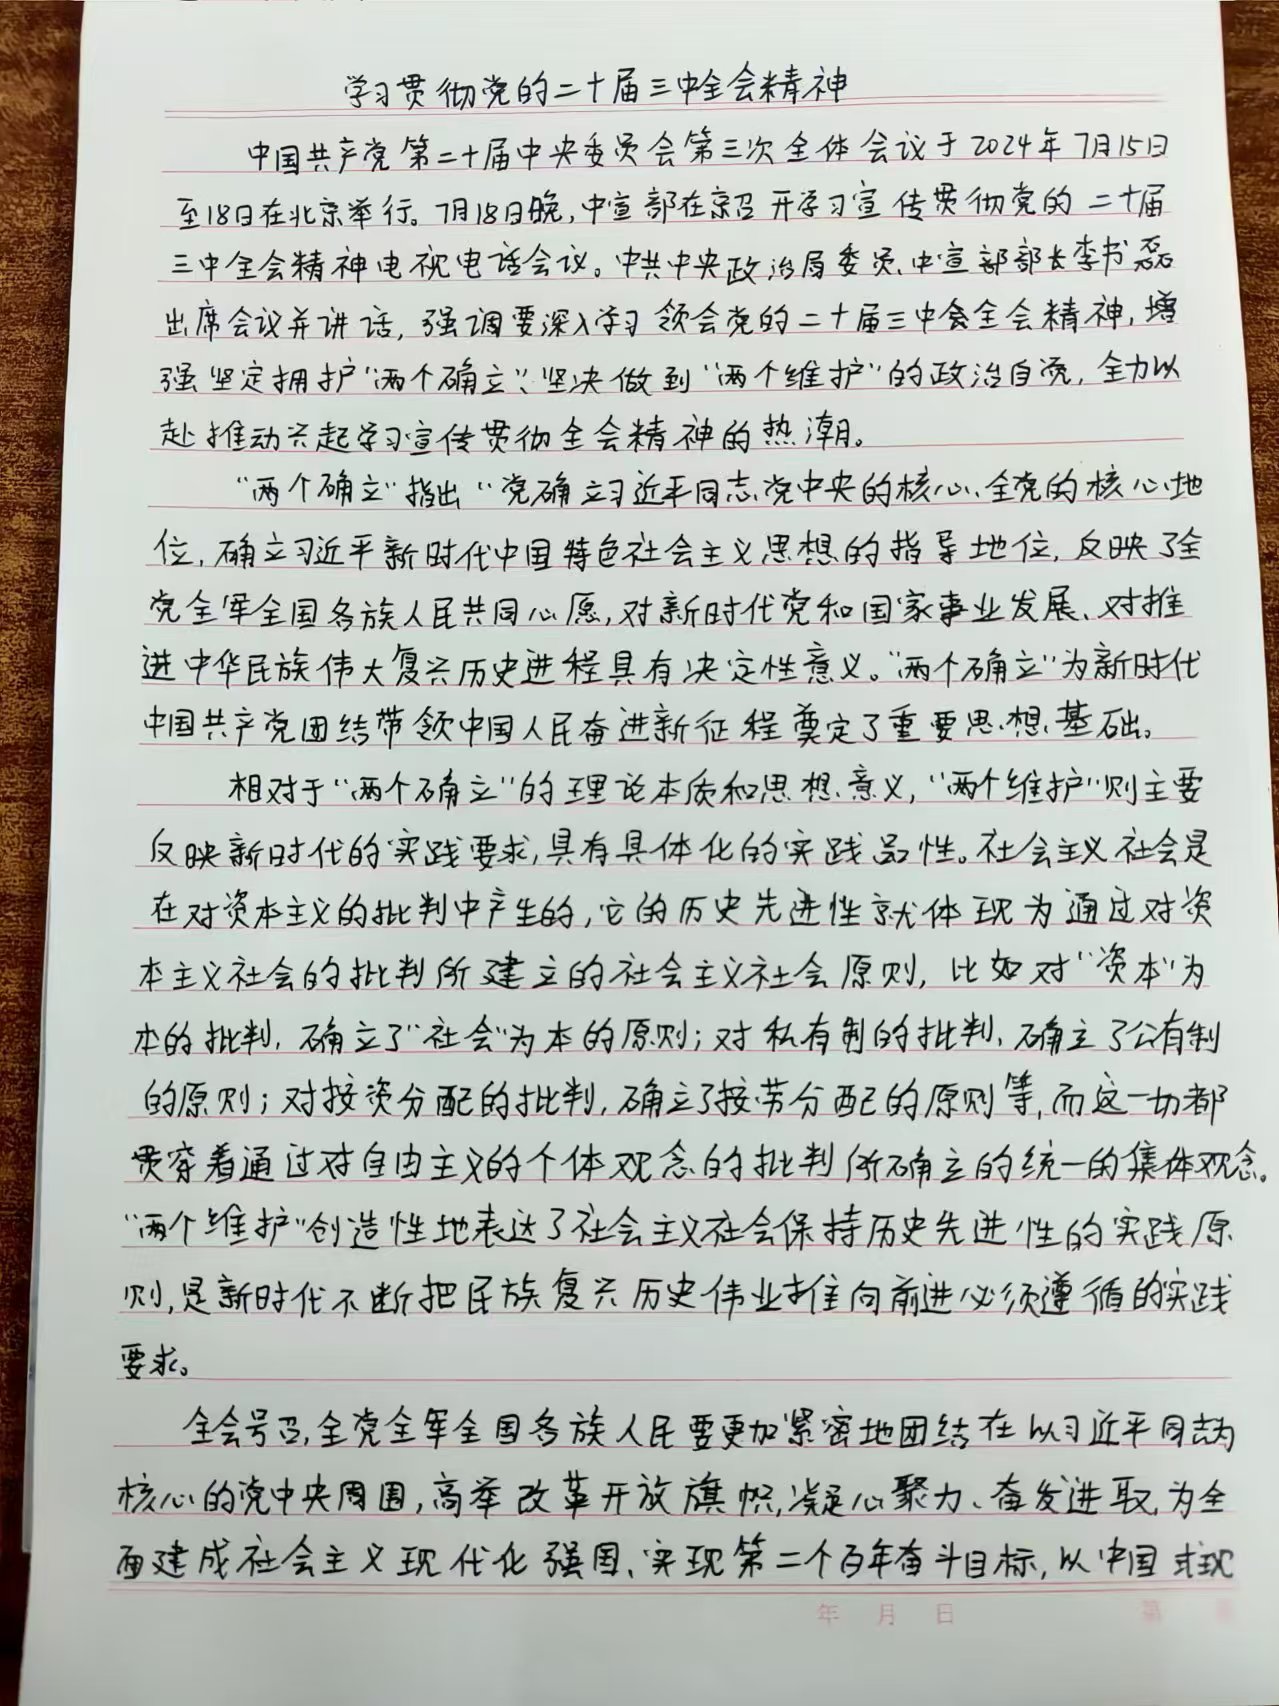 学习贯彻党的二十届三中全会精神
中国共产党第二十届中央委员会第三次全体会议于2024年7月15日
至18日在北京举行。7月18日晚,中宣部在京召开学习宣传贯彻党的二十届
三中全会精神电视电话会议。中共中央政治局委员、中宣部部长李书磊
出席会议并讲话,强调要深入学习领会党的二十届三中会全会精神,增
强坚定拥护“两个确立”、坚决做到“两个维护”的政治自觉,全力以
赴推动兴起学习宣传贯彻全会精神的热潮。
“两个确立”指出“党确立习近平同志党中央的核心、全党的核心地
位,确立习近平新时代中国特色社会主义思想的指导地位,反映了全
党全军全国各族人民共同心愿,对新时代党和国家事业发展、对推
进中华民族伟大复兴历史进程具有决定性意义。“两个确立”为新时代
中国共产党团结带领中国人民奋进新征程奠定了重要思想基础。
相对于“两个确立”的理论本质和思想意义,“两个维护”则主要
反映新时代的实践要求,具有具体化的实践品性。社会主义社会是
在对资本主义的批判中产生的,它的历史先进性就体现为通过对资
本主义社会的批判所建立的社会主义社会原则,比如对“资本”为
本的批判,确立了“社会”为本的原则;对私有制的批判,确立了公有制
的原则;对按资分配的批判,确立了按劳分配的原则等,而这一切都
贯穿着通过对自由主义的个体观念的批判所确立的统一的集体观念。
“两个维护”创造性地表达了社会主义社会保持历史先进性的实践原
则,是新时代不断把民族复兴历史伟业推向前进必须遵循的实践
要求。
全会号召,全党全军全国各族人民要更加紧密地团结在以习近平同志为
核心的党中央周围,高举改革开放旗帜,凝心聚力、奋发进取,为全
面建成社会主义现代化强国、实现第二个百年奋斗目标,以中国式现
年 月 日 第